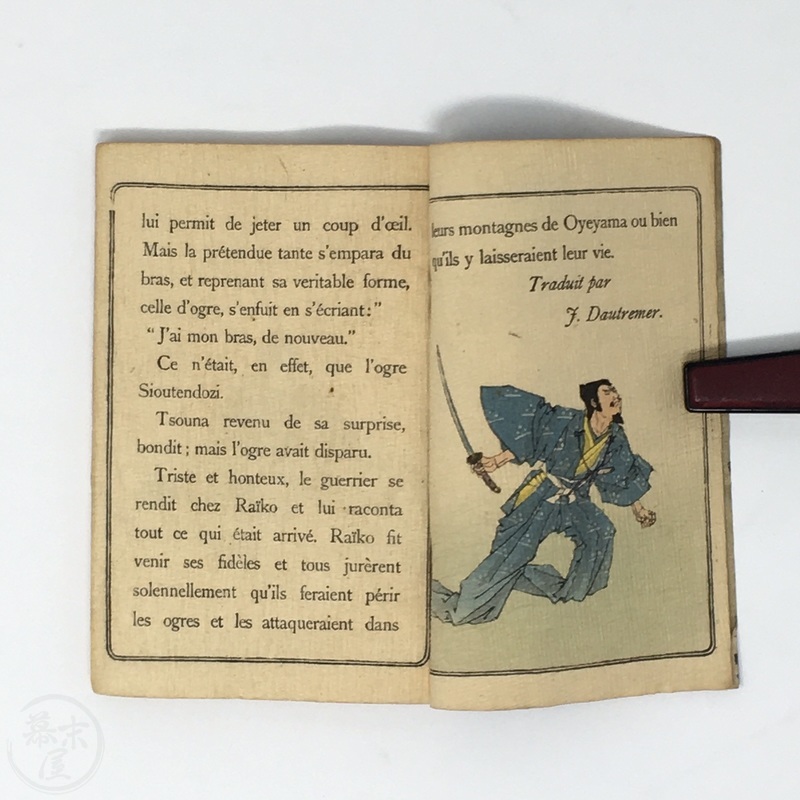 lui permit de jeter un coup d'œil.
Mais la prétendue tante s'empara du
bras, et reprenant sa veritable forme,
celle d'ogre, s'enfuit en s'écriant:"
"J'ai mon bras, de nouveau."
Ce n'était, en effet, que l'ogre
Sioutendozi.
Tsouna revenu de sa surprise,
bondit; mais l'ogre avait disparu.
Triste et honteux, le guerrier se
rendit chez Raïko et lui raconta
tout ce qui était arrivé. Raïko fit
venir ses fidèles et tous jurèrent
solennellement qu'ils feraient périr
les ogres et les attaqueraient dans
leurs montagnes de Oyeyama ou bien
qu'ils y laisseraient leur vie.
Traduit par
J. Dautremer.
幕末屋